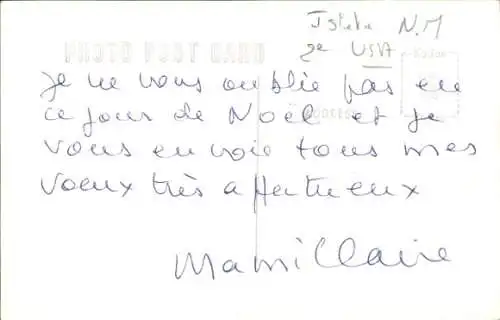 Isleta N.M
USA
PHOTO POST CARD
je ne vous oublie pas en
ce jour de Noël et je
vous envoie tous mes
voeux très affectueux
Mamie Claire